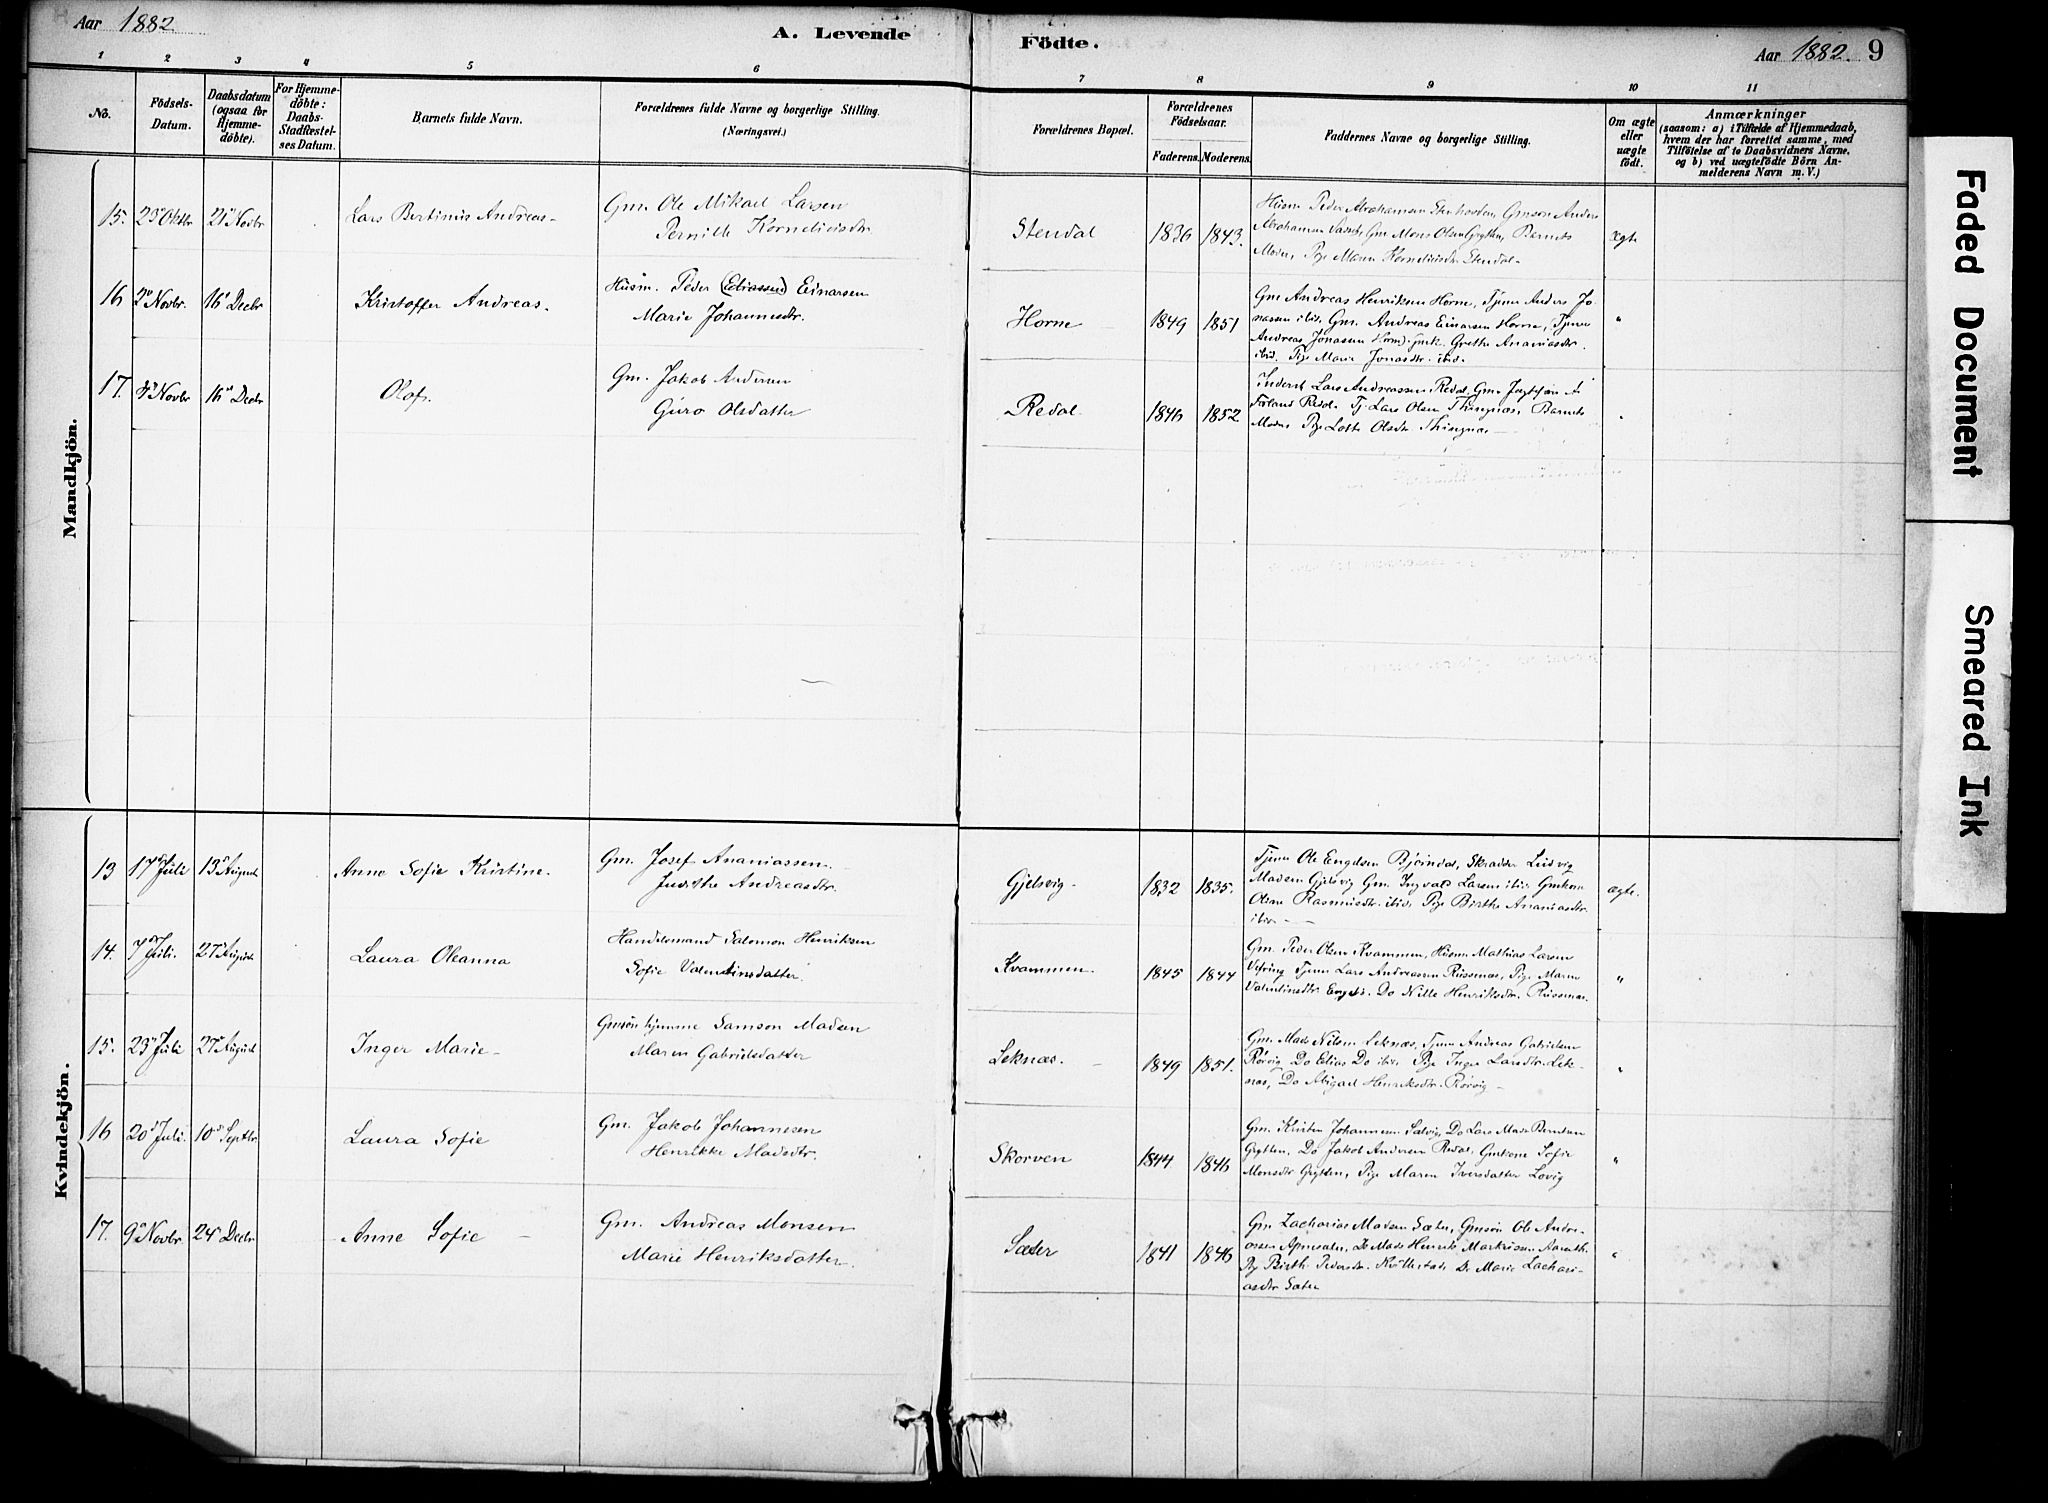 Aar 1882.
A. Levende Födte.
Aar 1882. 9
1 2 3 4 5 6 7 8 9 10 11
No.
Födsels-
Datum.
Daabsdatum
(ogsaa for
Hjemme-
döbte).
For Hjemme-
döbte:
Daabs-
Stadfæstel-
ses Datum.
Barnets fulde Navn.
Forældrenes fulde Navne og borgerlige Stilling.
(Næringsvei.)
Forældrenes Bopæl.
Forældrenes
Födselsaar.
Faderens. Moderens.
Faddernes Navne og borgerlige Stilling.
Om ægte
eller
uægte
födt.
Anmærkninger
(saasom: a) i Tilfælde af Hjemmedaab,
hvem der har forrettet samme, med
Tilföielse af to Daabsvidners Navne,
og b) ved uægtefödte Börn An-
melderens Navn m. V.)
Mandkjön.
15. 23 Oktbr 21 Novbr Lars Bertinus Andreas- Gm. Ole Mikael Larsen
Pernille Korneliusdtr
Stendal 1836 1843.
Husm Peder Abrahamsen Gmsøn Anders
Abrahamsen Gm Mons Olsen Grytten, Barnets
Moder, Pige Maren Korneliusdtr Stendal-
ægte
16 2 Novbr. 16 Decbr Kristoffer Andreas. Husm. Peder (Eliassen) Einarsen
Marie Johannesdtr.
Horne 1849 1851
Gm Andreas Henriksen Horne, Tjener Anders Jo-
nassen ibid. Gm. Andreas Einarsen Horne, Tjener
Andreas Jonassen Grethe Ananiasdtr.
ibid. Pige Marie Jonasdtr. ibid.
"
17. Novbr 16 Decbr Olaf. Gm. Jakob Andersen
Guro Olsdatter
Redal 1846 1852.
Inderst Lars Andreassen Redal, Gm.
Redal Tj. Lars Olsen Thingnæs, Barnets
Moder Pige Lotte Olsdtr Thingnæs
"
Kvindekjön.
13 17 Juli 13 August Anne Sofie Kristine. Gm. Josef Ananiassen
Judithe Andreasdtr.
Gjelsvig 1832 1835.
Tjener Ole Engelsen Bjørndal, Skrædder Ludvig
Madsen Gjelsvig Gm. Ingvald Larsen ibid. Gmkone
Oline Rasmusdtr. ibid, Pige Birthe Ananiasdtr.
ibid
ægte.
14. 7 Juli. 27 August Laura Oleanna Handelsmand Salomon Henriksen
Sofie Valentinsdatter.
Kvammen. 1845 1844
Gm. Peder Olsen Kvammen, Husm Mathias Larsen
Vefring Tjener Lars Andreassen Russenæs, Pige Maren
Valentinsdtr Do Nille Henriksdtr. Russenæs.
"
15. 23 Juli 27 August Inger Marie- Gmsøn hjemme Samson Madsen
Maren Gabrielsdatter
Leknæs. 1849 1851.
Gm. Mads Nilsen Leknæs, Tjener Andreas Gabrielsen
Rørvig Do Elias Do ibid. Pige Inger Larsdtr. Lek-
næs, Do Abigael Henriksdtr. Rørvig-
"
16 20 Juli. 10 Septbr. Laura Sofie Gm. Jakob Johannesen
Henrikke Madsdtr.
Skorven 1844 1846
Gm. Kristen Johannesen Do Lars Mads Berntsen
Grytten, Do Jakob Andersen Redal, Gmkone Sofie
Monsdtr Grytten, Pige Maren Iversdatter Løvig
"
17. 9 Novbr. 24 Decbr Anne Sofie Gm. Andreas Monsen
Marie Henriksdatter.
Sæter 1841 1846
Gm Zacharias Madsen Sæter, Gmsøn Ole Andre-
assen Do Mads Henrik Markusen
Pige Birthe Pedersdtr. Do Marie Zachari-
asdtr Sæter
"
Faded Document
Smeared Ink